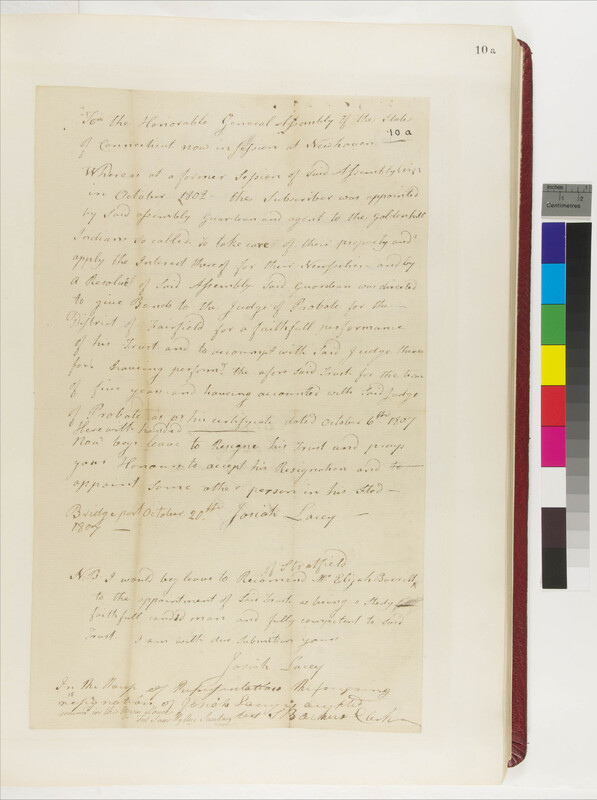 10a
To the Honorable General Assembly of the State
10a
of Connecticut now in Session at Newhaven
Whereas at a former Session of Said Assembly
in October 1802 the Subscriber was appointed
by Said assembly Guardean and agent to the Goldenhill
Indians so called to take care of their property and
apply the Interest thereof for their and by
a Resolve of Said Assembly Said Guardean was directed
to give Bonds to the Judge of Probate for the
District of Fairfield for a faithfull performance
of his Trust and to accompt with Said Judge there
for having perform'd the afore Said Trust for the term
of five years and having accounted with Said Judge
of Probate as pr his certificate dated October 6th 1807
Herewith handed
Now begs leave to Resigne his Trust and prays
your Honours to accept his Resignation and to
appoint Some other person in his Sted
Bridgeport October 20th Josiah Lacey
1807
of Stratfield
NB I would beg leave to Recomend Mr Elijah
to the appointment of Said Trust as being a Stedy
faithfull candid man and fully competent to Said
Trust I am with due Submition yours
Josiah Lacey
In the House of Representatives the foregoing
resignation of Josiah Lacey is accepted
Clerk